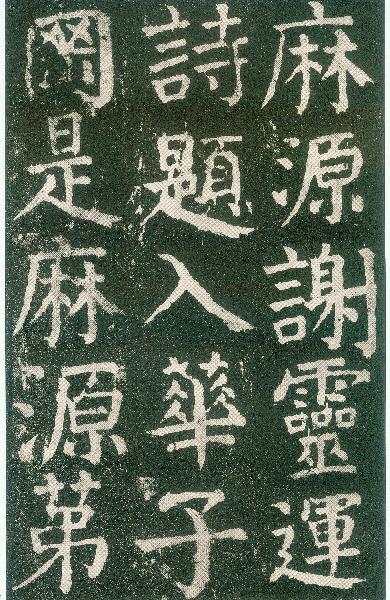 麻源謝靈運
詩題入華子
岡是麻源第